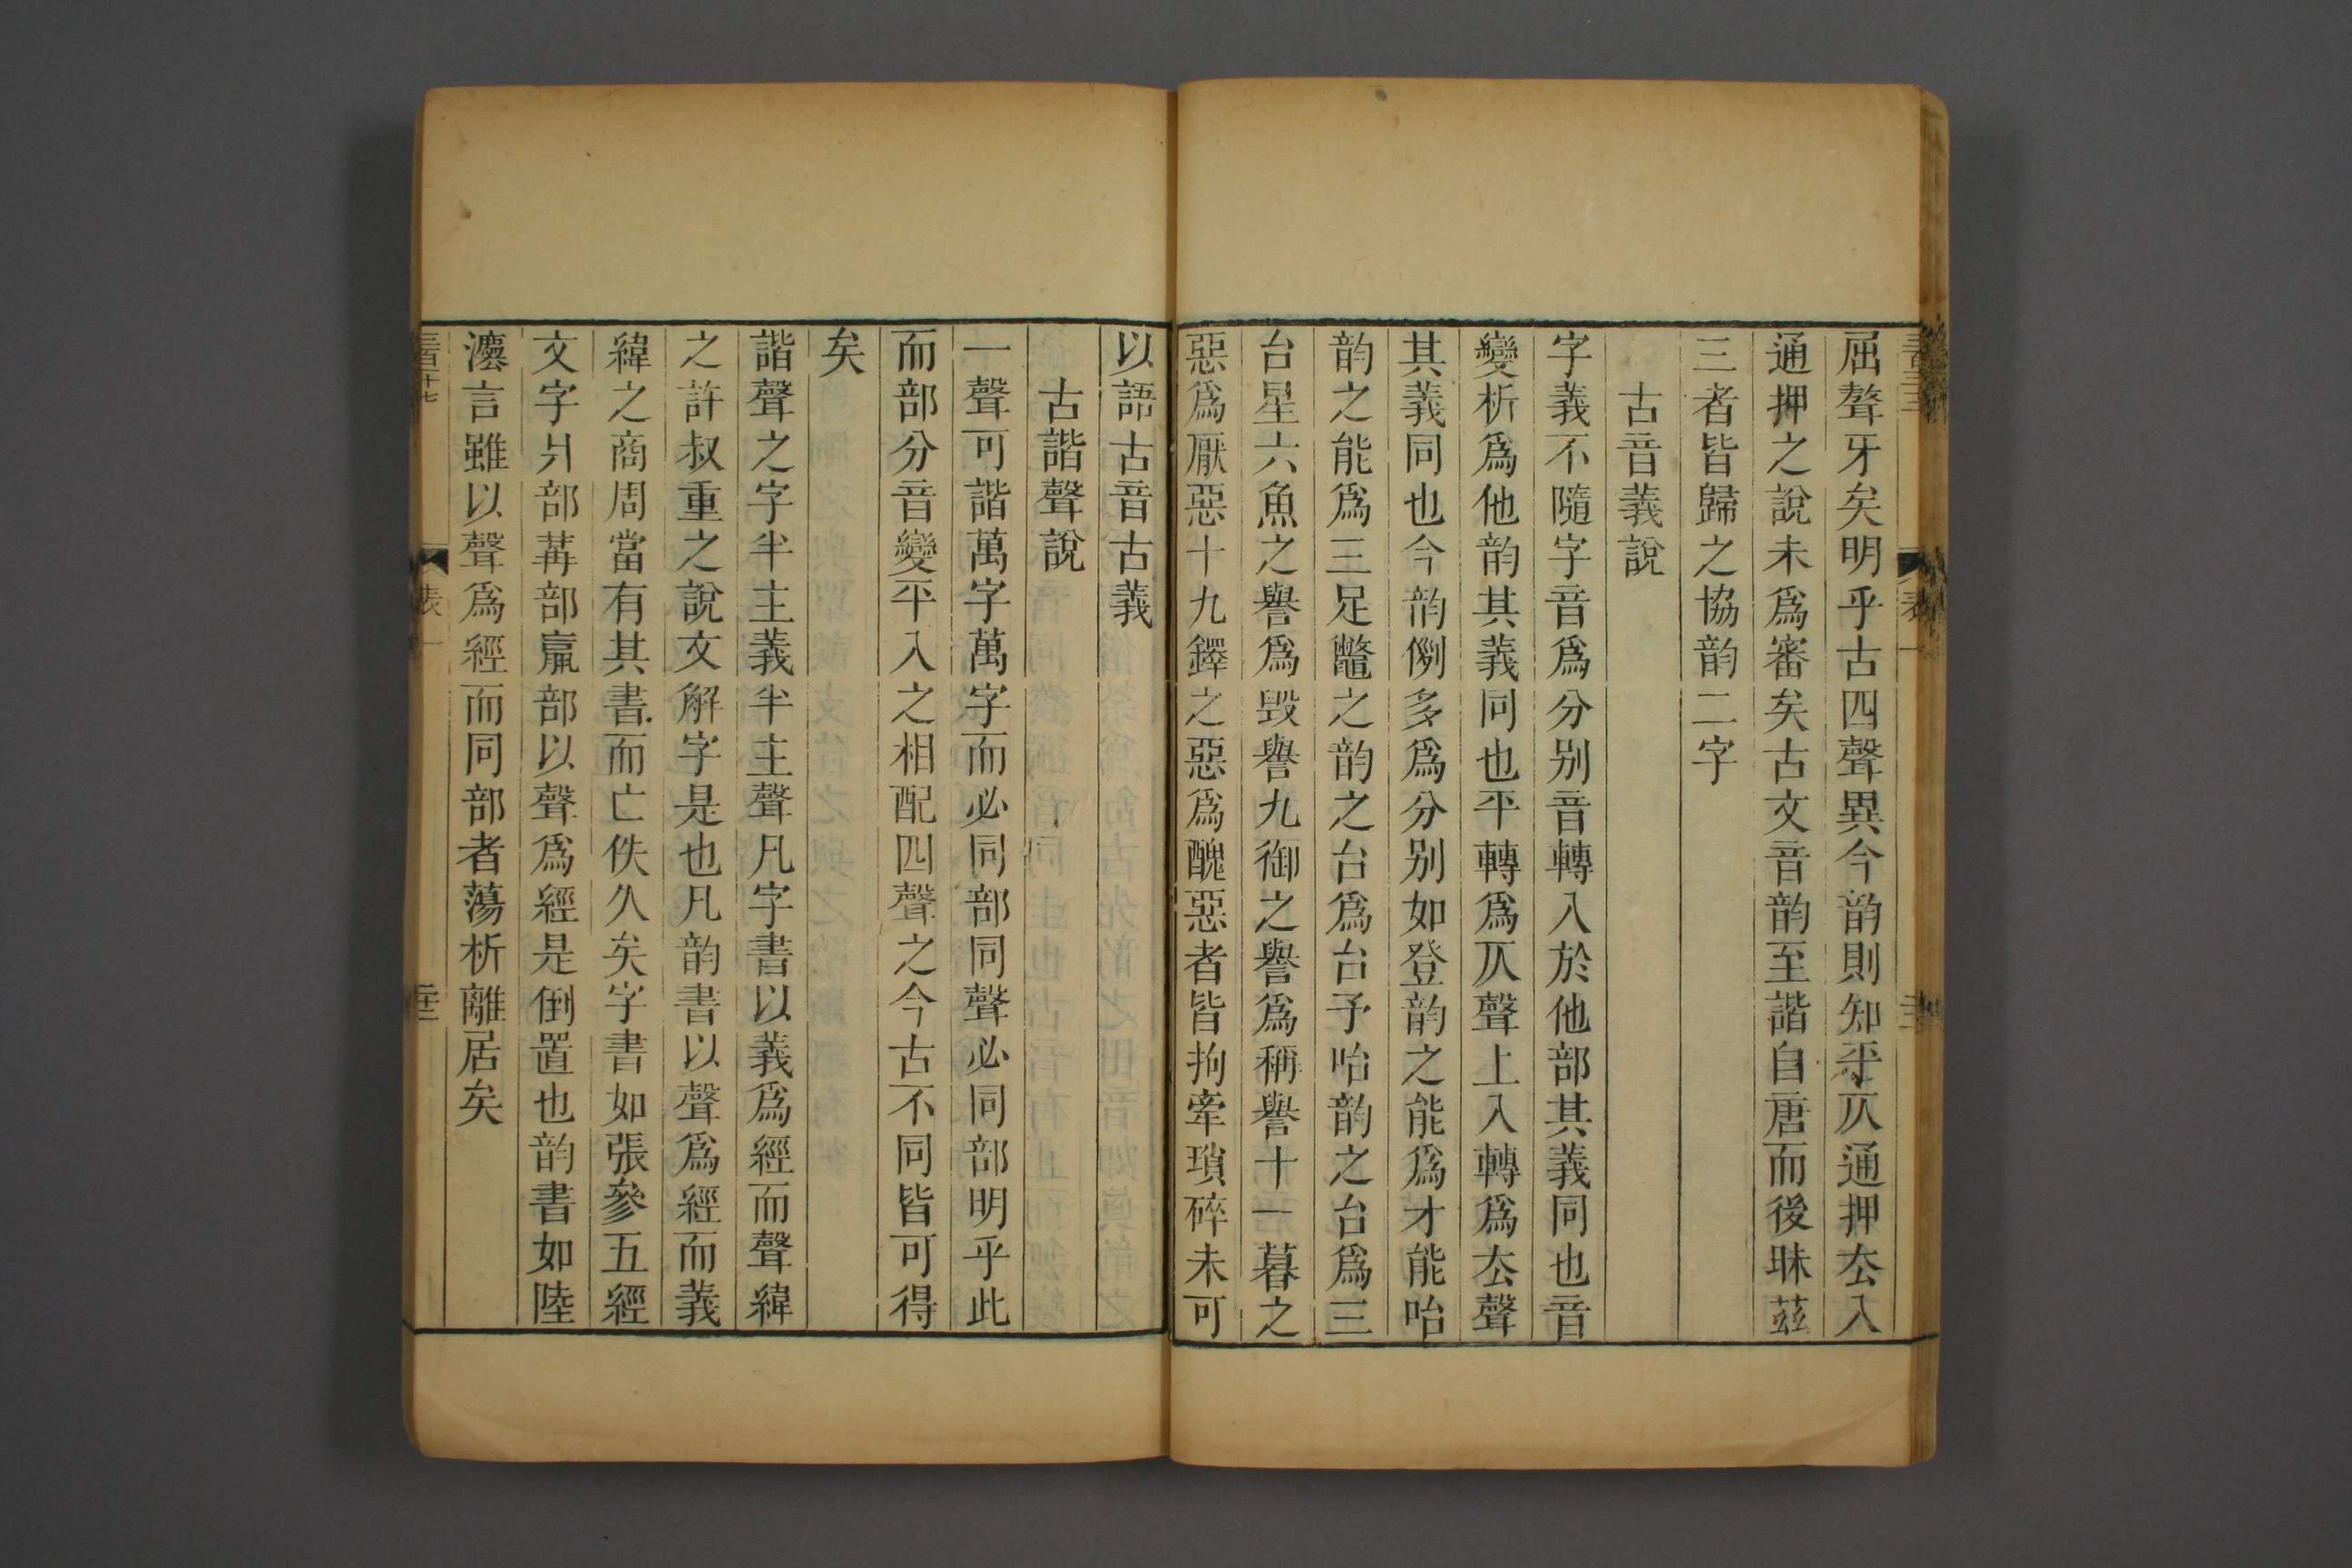 屈聱牙矣明乎古四聲異今韵則知平仄通押厺入
通押之說未爲審矣古文音韵至諧自唐而後昧茲
三者皆歸之協韵二字
古音義說
字義不隨字音爲分别音轉入於他部其義同也音
變析爲他韵其義同也平轉爲仄聲上入轉爲厺聲
其義同也今韵例多爲分别如登韵之能爲才能咍
韵之能爲三足鼈之韵之台爲台予咍韵之台爲三
台星六魚之譽爲毁譽九御之譽爲稱譽十一暮之
惡爲厭惡十九鐸之惡爲醜惡者皆拘牽瑣碎未可
以語古音古義
古諧聲說
一聲可諧萬字萬字而必同部同聲必同部明乎此
而部分音變平入之相配四聲之今古不同皆可得
矣
諧聲之字半主義半主聲凡字書以義爲經而聲緯
之許叔重之說文解字是也凡韵書以聲爲經而義
緯之商周當有其書而亡佚久矣字書如張參五經
文字爿部冓部𣎆部以聲爲經是倒置也韵書如陸
灋言雖以聲爲經而同部者蕩析離居矣
表一